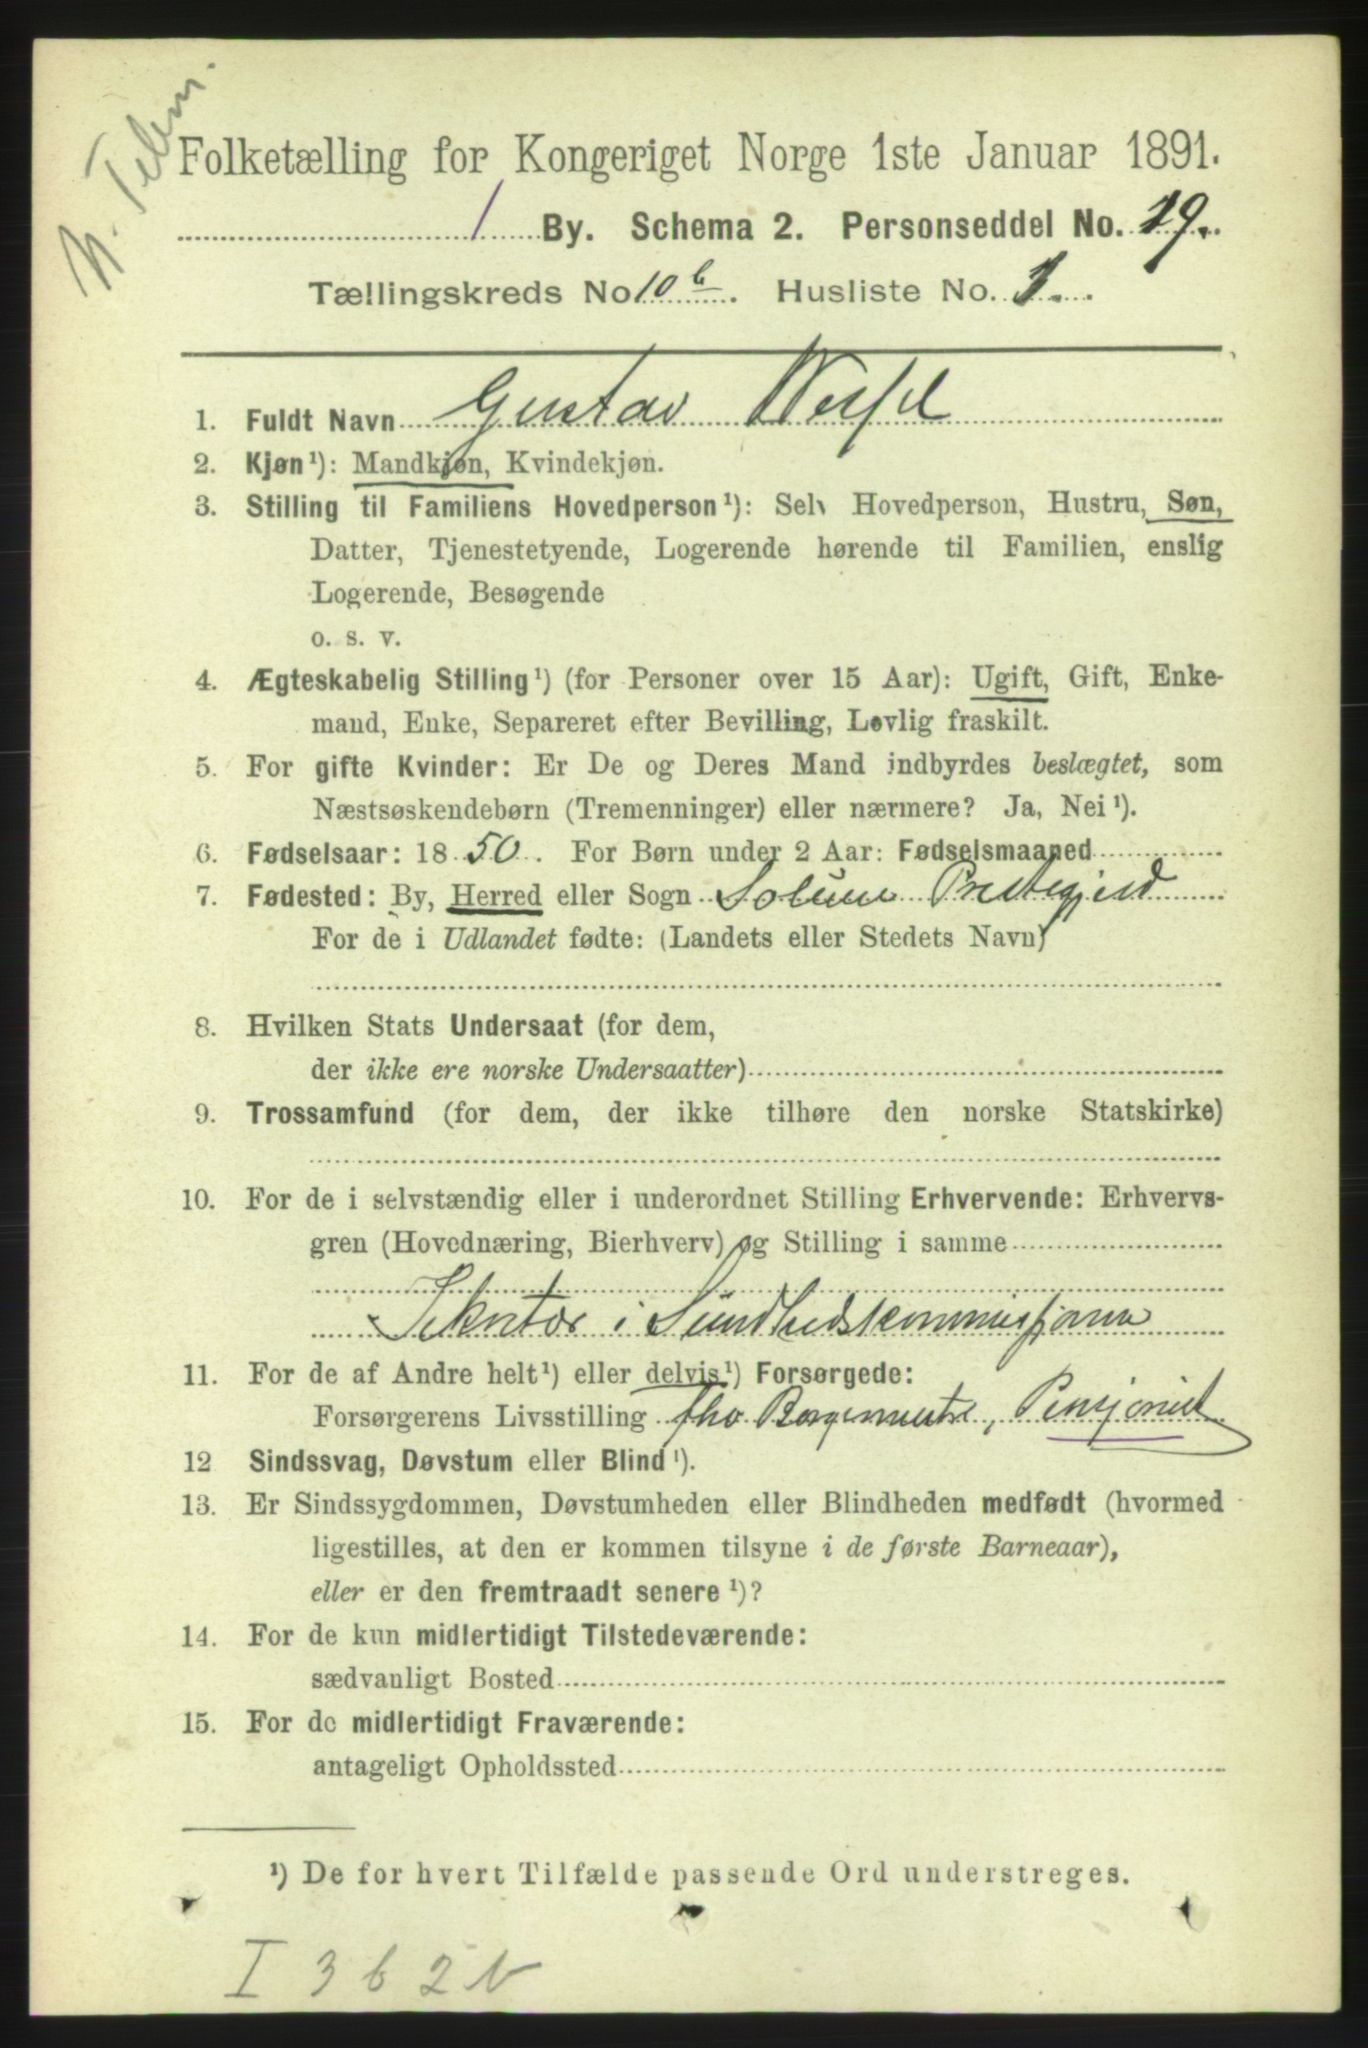 N. Telem.
Folketælling for Kongeriget Norge 1ste Januar 1891.
1 By. Schema 2. Personseddel No. 19.
Tællingskreds No 10 b. Husliste No. 1.
1. Fuldt Navn Gustav Wessel
2. Kjøn¹): Mandkjøn, Kvindekjøn.
3. Stilling til Familiens Hovedperson¹): Selv Hovedperson, Hustru, Søn,
Datter, Tjenestetyende, Logerende hørende til Familien, enslig
Logerende, Besøgende
o. s. v.
4. Ægteskabelig Stilling¹) (for Personer over 15 Aar): Ugift, Gift, Enke-
mand, Enke, Separeret efter Bevilling, Lovlig fraskilt.
5. For gifte Kvinder: Er De og Deres Mand indbyrdes beslægtet, som
Næstsøskendebørn (Tremenninger) eller nærmere? Ja, Nei¹).
6. Fødselsaar: 1850. For Børn under 2 Aar: Fødselsmaaned
7. Fødested: By, Herred eller Sogn Solum Prestegjeld
For de i Udlandet fødte: (Landets eller Stedets Navn)
8. Hvilken Stats Undersaat (for dem,
der ikke ere norske Undersaatter)
9. Trossamfund (for dem, der ikke tilhøre den norske Statskirke)
10. For de i selvstændig eller i underordnet Stilling Erhvervende: Erhvervs-
gren (Hovednæring, Bierhverv) og Stilling i samme
Sekretær i Sundhedskommissjonen
11. For de af Andre helt¹) eller delvis¹) Forsørgede:
Forsørgerens Livsstilling fhv Borgermester, Pensjonist
12 Sindssvag, Døvstum eller Blind¹).
13. Er Sindssygdommen, Døvstumheden eller Blindheden medfødt (hvormed
ligestilles, at den er kommen tilsyne i de første Barneaar),
eller er den fremtraadt senere¹)?
14. For de kun midlertidigt Tilstedeværende:
sædvanligt Bosted
15. For de midlertidigt Fraværende:
antageligt Opholdssted
¹) De for hvert Tilfælde passende Ord understreges.
I 3 b 2